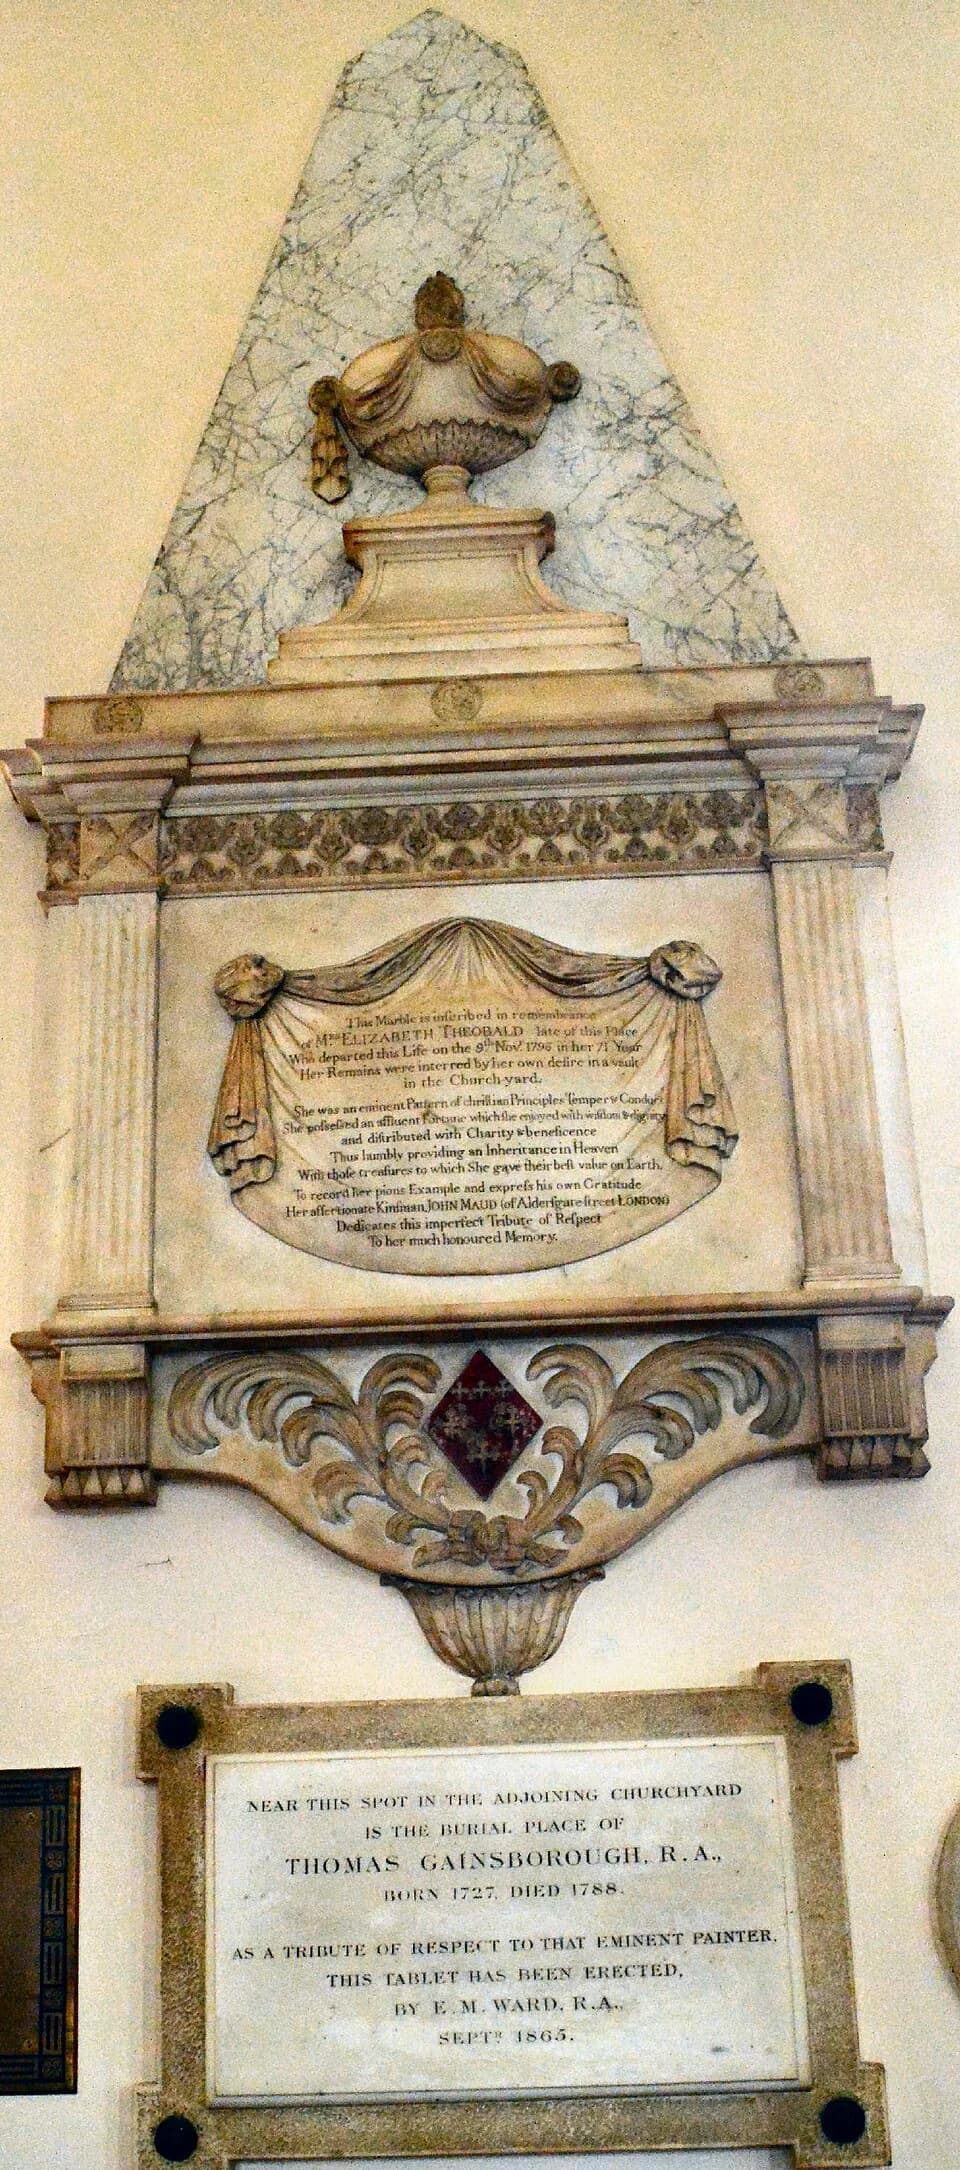 This Marble is inscribed in remembrance
of Mrs ELIZABETH THEOBALD late of this Place
Who departed this Life on the 9th Nov. 1796 in her 71 Year
Her Remains were interred by her own desire in a vault
in the Church-yard.
She was an eminent Pattern of christian Principles Temper & Conduct
She possessed an affluent Fortune which she enjoyed with wisdom & dignity
and distributed with Charity & beneficence
Thus humbly providing an Inheritance in Heaven
With those treasures to which She gave their best value on Earth.
To record her pious Example and express his own Gratitude
Her affectionate Kinsman JOHN MAUD (of Aldersgate street LONDON)
Dedicates this imperfect Tribute of Respect
To her much honoured Memory.
NEAR THIS SPOT IN THE ADJOINING CHURCHYARD
IS THE BURIAL PLACE OF
THOMAS GAINSBOROUGH, R.A.,
BORN 1727, DIED 1788.
AS A TRIBUTE OF RESPECT TO THAT EMINENT PAINTER,
THIS TABLET HAS BEEN ERECTED,
BY E.M. WARD, R.A.,
SEPTR 1865.